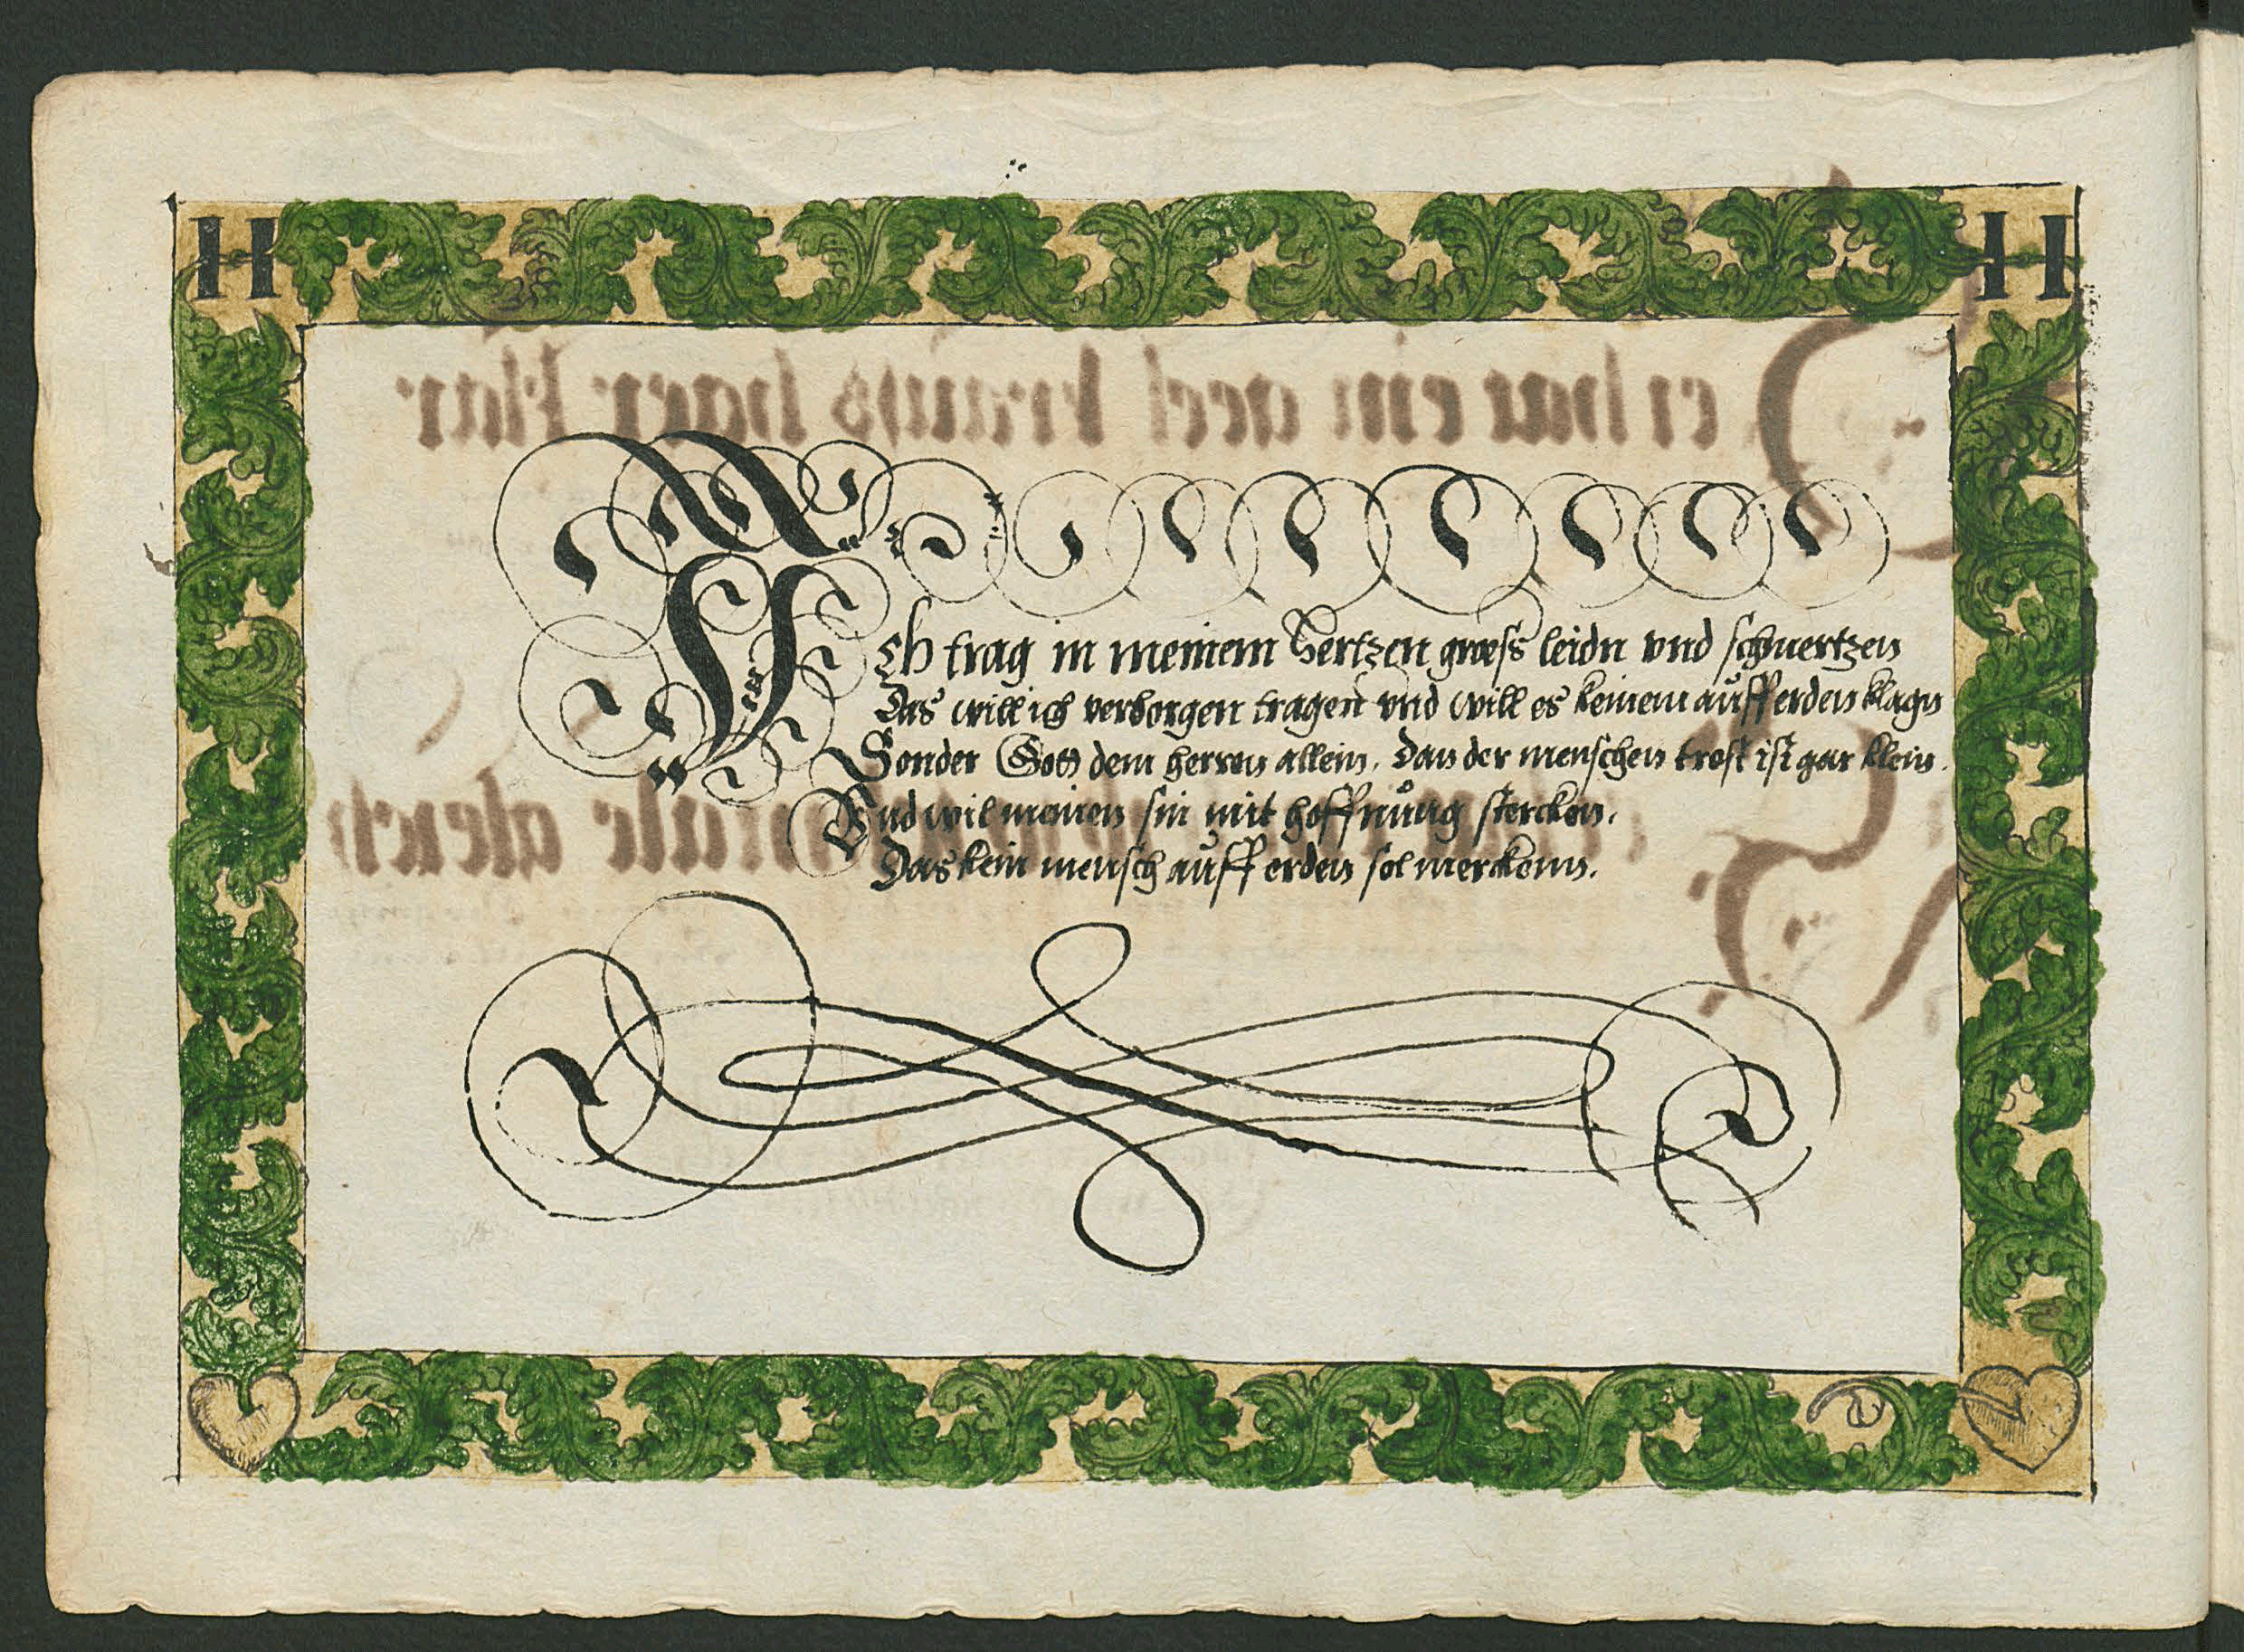 H H
Ich trag in meinem hertzen gross leidn vnd schmertzen
Das will ich verborgen tragen vnd will es keinem auff erden klagn
Sonder Gott dem herren allein. Dan der menschen trost ist gar klein.
Vnd wil meinen sin mit hoffnung stercken.
Das kein mensch auff erden sol merckenn.